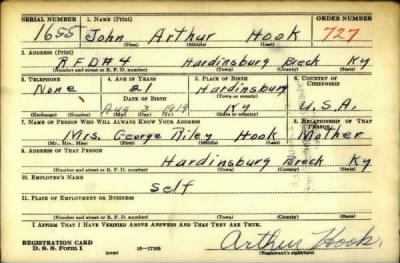 SERIAL NUMBER 1. NAME (Print) ORDER NUMBER
1655 John Arthur Hook 727
(First) (Middle) (Last)
2. ADDRESS (Print)
R F D # 4 Hardinsburg Breck Ky
(Number and street or R. F. D. number) (Town) (County) (State)
3. TELEPHONE 4. AGE IN YEARS 5. PLACE OF BIRTH 6. COUNTRY OF CITIZENSHIP
None 21 Hardinsburg
DATE OF BIRTH (Town or county)
Aug 3 1919 Ky U.S.A.
(Exchange) (Number) (Mo.) (Day) (Yr.) (State or country)
7. NAME OF PERSON WHO WILL ALWAYS KNOW YOUR ADDRESS 8. RELATIONSHIP OF THAT PERSON
Mrs. George Riley Hook Mother
(Mr., Mrs., Miss) (First) (Middle) (Last)
9. ADDRESS OF THAT PERSON
Hardinsburg Breck Ky
(Number and street or R. F. D. number) (Town) (County) (State)
10. EMPLOYER'S NAME
Self
11. PLACE OF EMPLOYMENT OR BUSINESS
(Number and street or R. F. D. number) (Town) (County) (State)
I AFFIRM THAT I HAVE VERIFIED ABOVE ANSWERS AND THAT THEY ARE TRUE.
REGISTRATION CARD
D. S. S. Form 1 (over) 16-17105 Arthur Hook
(Registrant's signature)